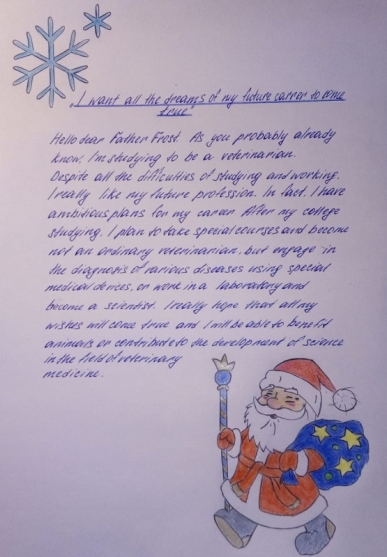 „I want all the dreams of my future career to come
true"
Hello dear Father Frost. As you probably already
know, I'm studying to be a veterinarian.
Despite all the difficulties of studying and working,
I really like my future profession. In fact, I have
ambitious plans for my career. After my college
studying, I plan to take special courses and become
not an ordinary veterinarian, but engage in
the diagnosis of various diseases using special
medical devices, or work in a laboratory and
become a scientist. I really hope that all my
wishes will come true and I will be able to benefit
animals or contribute to the development of science
in the field of veterinary
medicine.